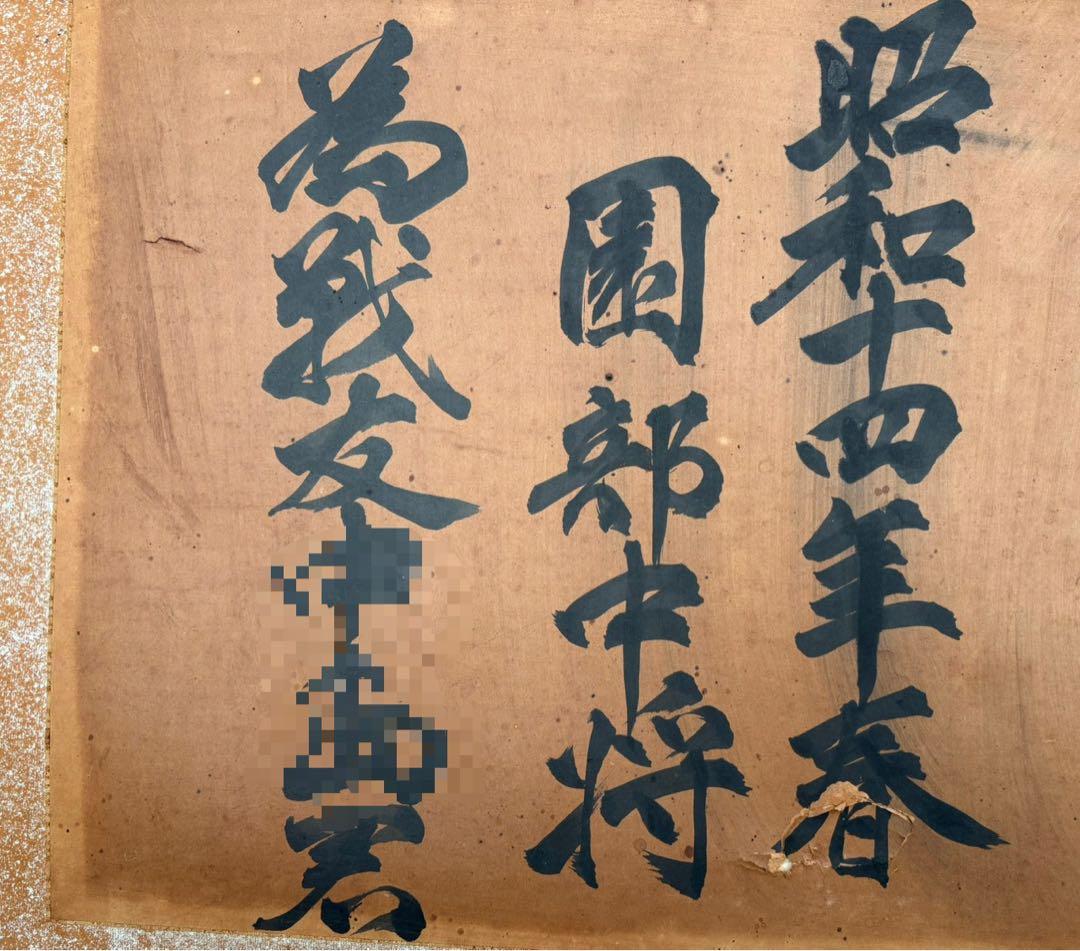 昭和十四年春
園部中将
為戦友君